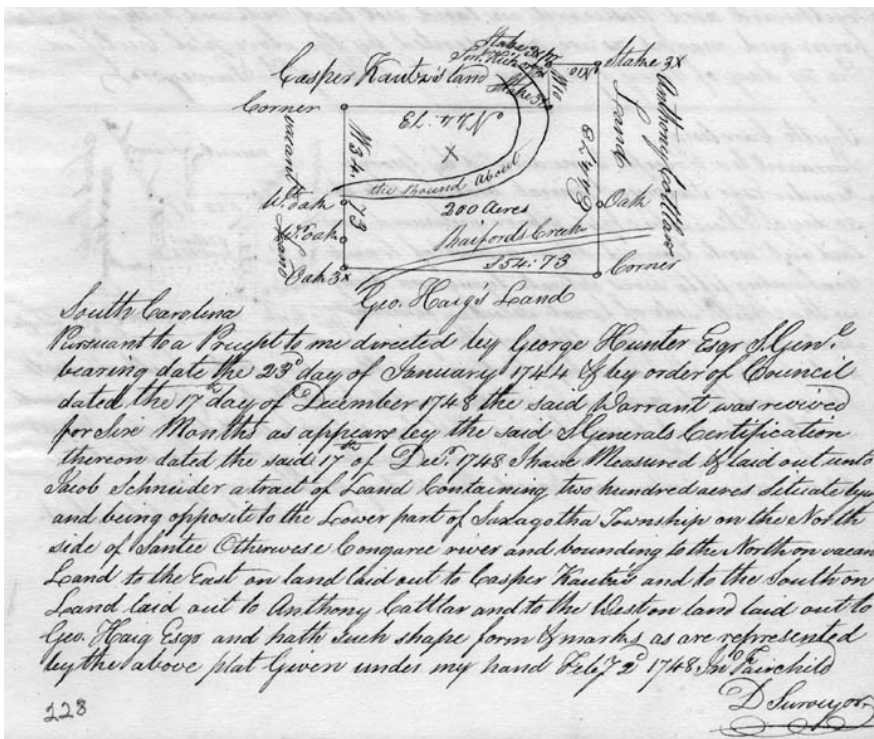 Stake 3X
Stake 3X
Stake 3X
Casper Kautzis land
Corner
N 44:73
W 34.73
vacant
Land
X
the Round About
200 Acres
Raifords Creek
W. Oak
W. Oak
Oak 3X
Oak
Anthony Cottlar
Land
S 54:73
Corner
Geo. Haig's Land
South Carolina
Pursuant to a Precept to me directed by George Hunter Esqr S. Genl.
bearing date the 23d day of January 1744 & by order of Council
dated the 17th day of December 1748 the said Warrant was revived
for Six Months as appears by the said S Generals Certification
thereon dated the said 17th of Decr. 1748 I have Measured & laid out unto
Jacob Schnider a tract of Land Containing two hundred acres Situate lying
and being opposite to the Lower part of Saxagotha Township on the North
side of Santee Otherwese Congaree river and bounding to the North on vacan
Land to the East on land laid out to Casper Kautzis and to the South on
Land laid out to Anthony Cattlar and to the West on land laid out to
Geo. Haig Esqr and hath such shape form & marks as are represented
by the above plat Given under my hand Feby 2d 1748 Jno Fairchild
D Surveyor
228